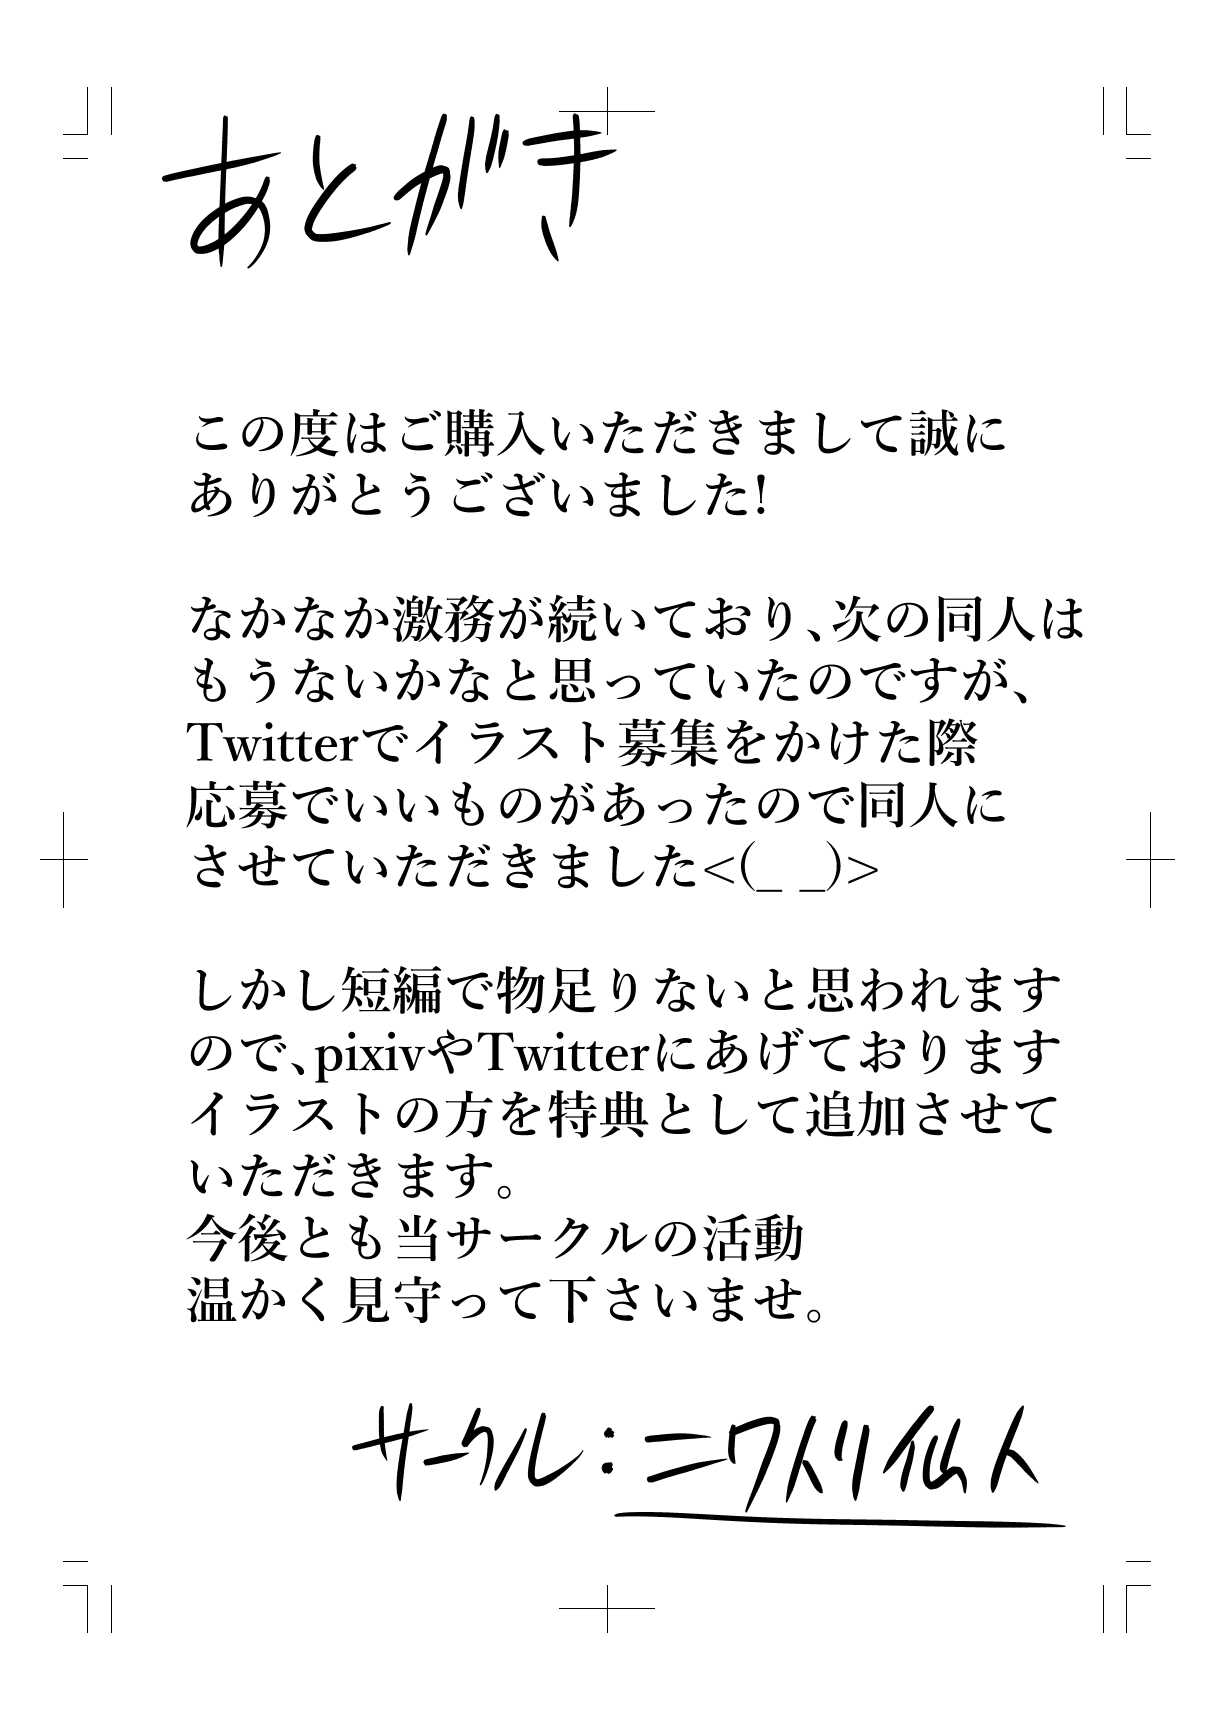 あとがき
この度はご購入いただきまして誠に
ありがとうございました!
なかなか激務が続いており、次の同人は
もうないかなと思っていたのですが、
Twitterでイラスト募集をかけた際
応募でいいものがあったので同人に
させていただきました<(_ _)>
しかし短編で物足りないと思われます
ので、pixivやTwitterにあげております
イラストの方を特典として追加させて
いただきます。
今後とも当サークルの活動
温かく見守って下さいませ。
サークル:ニワトリ仙人